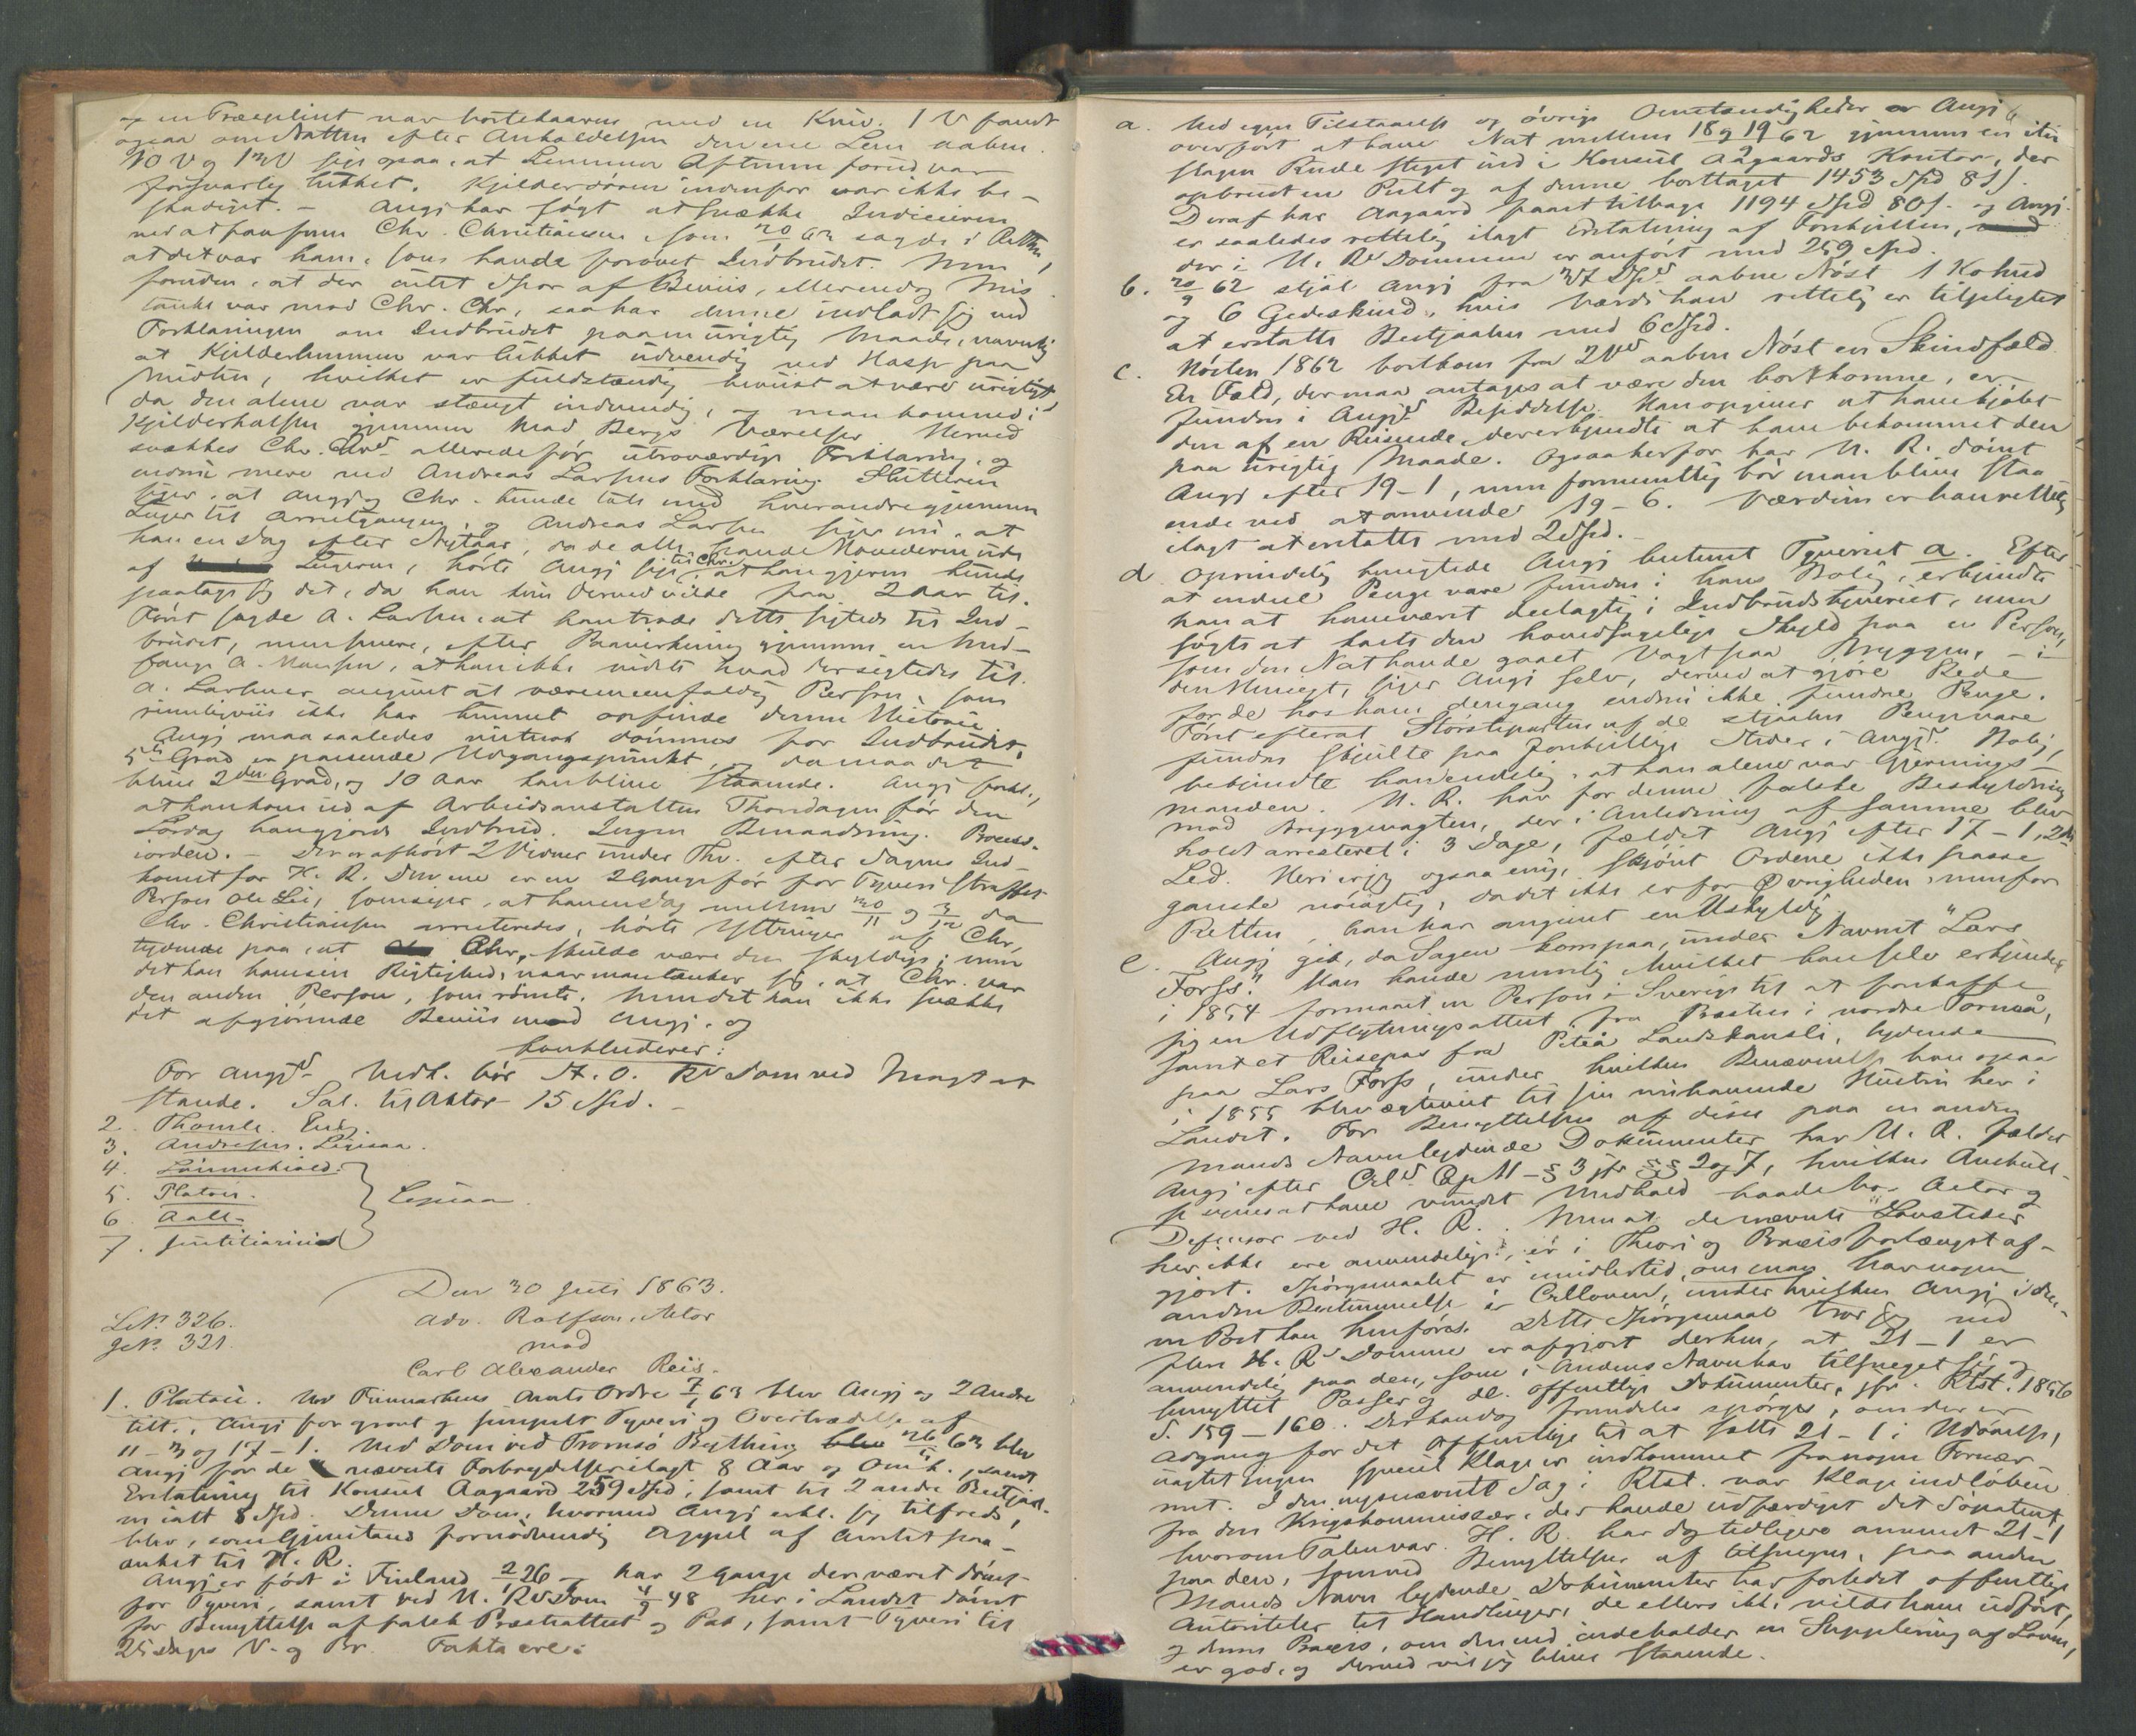 en Træsplint var bortskaaren med en Kniv. 1 V fandt
ogsaa om Natten efter Anholdelsen den ene Lem aaben.
10 V og 13 V siger ogsaa, at Lemmen Aftenen forud var
forsvarlig lukket. Kjelderdøren indenfor var ikke be-
skadiget. – Angj har søgt at svække Indicierne
ved at paastaa Chr. Christiansen, som 20 62 sagde i Retten,
at det var ham, som havde forøvet Indbrudet. Men,
foruden, at der intet Spor af Beviis, eller endog Mis-
tanke var mod Chr. Chr, saa har denne indladt sig ved
Forklaringen om Indbrudet paa en urigtig Maade, navnlig
at Kjelderlemmen var lukket udvendig med Haspe paa
Midten, hvilket er fuldstændig beviist at være urigtigt,
da den alene var stængt indvendig, og man kom ned i
Kjelderhalsen gjennem Mad Bergs Værelse. Herved
svækkes Chr. Chrs allerede før utroværdige Forklaring, og
endnu mere ved Andreas Larsens Forklaring. Slutteren
siger, at Angj og Chr. kunde tale med hverandre gjennem
Luger til Arrestgangen, og Andreas Larsen siger nu, at
han en Dag efter Nytaar, da de alle havde Hovederne ude
af Lugerne, hørte Angj sige til Chr. at han gjerne kunde
paatage sig det, da han kun derved vilde faa 2 Aar til.
Først sagde A. Larsen, at han troede dette sigtede til Ind-
brudet, men senere, efter Paavirkning gjennem en Med-
fange A. Hansen, at han ikke vidste hvad der sigtedes til.
A. Larsen er angivet at være en eenfoldig Person, som
rimeligviis ikke har kunnet opfinde denne Historie.
Angj maa saaledes dømmes for Indbrudet.
5te Grad er passende Udgangspunkt, og da maa det
blive 2den Grad, og 10 Aar kan blive staaende. Angj forkl.,
at han kom ud af Arbeidsanstalten Thorsdagen før den
Lørdag han gjorde Indbrud. Ingen Benaadning. Processen
i orden. – Der er afhørt 2 Vidner under Thv. efter Sagens Ind-
komst for H. R. Den ene er en 2 Gange før for Tyveri straffet
Person Ole Lie, som siger, at han en Dag mellem 30/11 og 3/12 da
Chr. Christiansen arresteredes, hørte Yttringer af Chr,
tydende paa, at Chr. skulde være den skyldige; men
det kan have sin Rigtighed, naar man tænker sig, at Chr. var
den anden Person, som rømte. Men det kan ikke svække
det afgjørende Beviis mod Angj. og
konkluderer:
For Angjs Vedk. bør St. O. Rs Dom ved Magt at
stande. Sal. til Aktor 15 Spd. –
2. Thomle. Enig.
3. Andresen. Ligesaa.
4. Lønneskiold.
5. Platou.
6. Aall.
7. Justitiarius
Ligesaa.
Den 30 Juli 1863.
LN. 326.
JN. 321.
Adv. Rolfsen, Aktor
mod
Carl Alexander Reis.
1. Platou. Ved Finmarkens Amts Ordre 7/1 63 blev Angj og 2 Andre
tilt., Angj for grovt og simpelt Tyveri og Overtrædelse af
11–3 og 17–1. Ved Dom ved Tromsø Bything 26/5 63 blev
Angj for de nævnte Forbrydelser ilagt 8 Aar og Omk., samt
Erstatning til Konsul Aagaard 259 Spd, samt til 2 andre Bestjaal-
ne ialt 8 Spd. Denne Dom, hvormed Angj erkl. sig tilfreds,
blev, som Gjenstand fornødvendig Appel af Amtet paa-
anket til H. R.
Angj er født i Finland 2/1 26 – har 2 Gange der været straf-
for Tyveri, samt ved U. Rs Dom 4/9 48 her i Landet dømt
for Benyttelse af falsk Præsteattest og Pas, samt Tyveri til
25 Dages V. og Br. Fakta ere:
a. Ved egen Tilstaaelse og øvrige Omstændigheder er Angj
overført at have Nat mellem 18 og 19 62 gjennem en itu
slagen Rude steget ind i Konsul Aagaards Kontor, der
opbrudt en Pult og af denne borttaget 1453 Spd 8 s.
Deraf har Aagaard faaet tilbage 1194 Spd 80 s. og Angj.
er saaledes rettelig ilagt Erstatning af Forskjellen,
der i U. Rs Dommen er anført med 259 Spd.
b. 20/9 62 stjal Angj fra aabne Nøst 1 Kohud
og 6 Gedeskind, hvis Værdi han rettelig er tilpligtet
at erstatte Bestjaalne med 6 Spd.
c. Høsten 1862 bortkom fra 2Vs aabne Nøst en Skindfæld
En Fæld, der maa antages at være den bortkomne, er
funden i Angjs Besiddelse. Han opgiver at have kjøbt
den af en Reisende, der erkjendte at have bekommet den
paa urigtig Maade. Ogsaa herfor har U. R. dømt
Angj efter 19–1, men formentlig bør man blive staa
ende ved at anvende 19–6. Værdien er han rettelig
ilagt at erstatte med 2 Spd. –
d Oprindelig benegtede Angj bestemt Tyveriet a. Efter
at endeel Penge vare fundne i hans Bolig, erkjendte
han at have været deelagtig i Indbrudstyveriet, men
søgte at kaste den hovedsagelige Skyld paa en Person,
som den Nat havde gaaet Vagt paa Bryggen, – i
den Hensigt, siger Angj selv, derved at gjøre Rede
for de hos ham dengang endnu ikke fundne Penge.
Først efterat Størsteparten af de stjaalne Penge vare
fundne skjulte paa forskjellige Steder i Angjs Bolig,
bekjendte han endelig, at han alene var Gjernings-
manden. U. R. har for denne falske Beskyldning
mod Bryggevagten, der i Anledning af samme blev
holdt arresteret i 3 Dage, fældet Angj efter 17–1, 2det
Led. Heri er jeg ogsaa enig, skjønt Ordene ikke passe
ganske nøiagtig, da det ikke er for Øvrigheden, men for
Retten, han har angivet en Uskyldig.
e. Angj gik, da Sagen kom paa, under Navnet "Lars
Forss." Han havde nemlig, hvilket han selv erkjender,
i 1854 formaaet en Person i Sverige til at forskaffe
sig en Udflytningsattest fra Præsten i nordre Torneå,
samt et Reisepas fra Piteå Landskansli, lydende
paa Lars Forss, under hvilken Benævnelse han ogsaa
i 1855 blev ægteviet til sin nuhavende Hustru her i
Landet. For Benyttelsen af disse paa en anden
Mands Navn lydende Dokumenter har U. R. fældet
Angj efter Crls Cp 11–§ 3 jfr §§ 2 og 7, hvilken Anskuel-
se synes at have vundet Medhold baade hos Actor og
Defensor ved H. R. Men at de nævnte Lovsteder
her ikke ere anvendelige, er i Theori og Praxis forlængst af-
gjort. Spørgsmaalet er imidlertid, om man har nogen
anden Bestemmelse i Crlloven, under hvilken Angj i den-
ne Post kan henføres. Dette Spørgsmaal tror jeg ved
flere H. Rs Domme er afgjort derhen, at 21–1 er
anvendelig paa den, som i Andens Navn har tilsneget sig og
benyttet Passer og dl. offentlige Dokumenter, jfr. Rtst. 1856
S. 159–160. Der kan dog fremdeles spørges, om der er
Adgang for det Offentlige til at sætte 21–1 i Udøvelse,
uagtet ingen speciel Klage er indkommet fra nogen Fornær-
met. I den nysnævnte Sag i Rtst. var Klage indløben
fra den Krigskommissær, der havde udfærdiget det Søpatent,
hvorom Talen var. H. R. har dog tidligere anvendt 21–1
paa den, som ved Benyttelsen af tilsnegne, paa anden
Mands Navn lydende Dokumenter har forledet offentlige
Autoriteter til Handlinger, de ellers ikke vilde have udført,
og denne Praxis, om den end indeholder en Supplering af Loven,
er god, og derved vil jeg blive staaende.